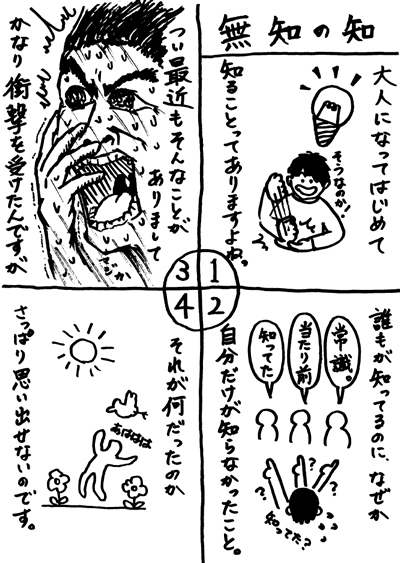 無知の知
大人になってはじめて
知ることってありますよね。
そうなのか!
1
誰もが知ってるのに、なぜか
常識。
当たり前
知ってた
自分だけが知らなかったこと。
? ? ?
知ってた?
2
つい最近もそんなことが
ありまして
かなり衝撃を受けたんですが
マジか
3
それが何だったのか
さっぱり思い出せないのです。
あはははは
4